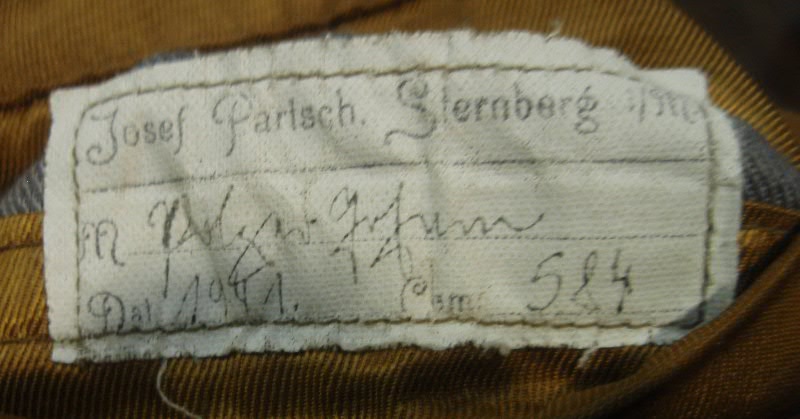 Josef Partsch. Sternberg i/M.
M
Dat. 1941. Com. 584